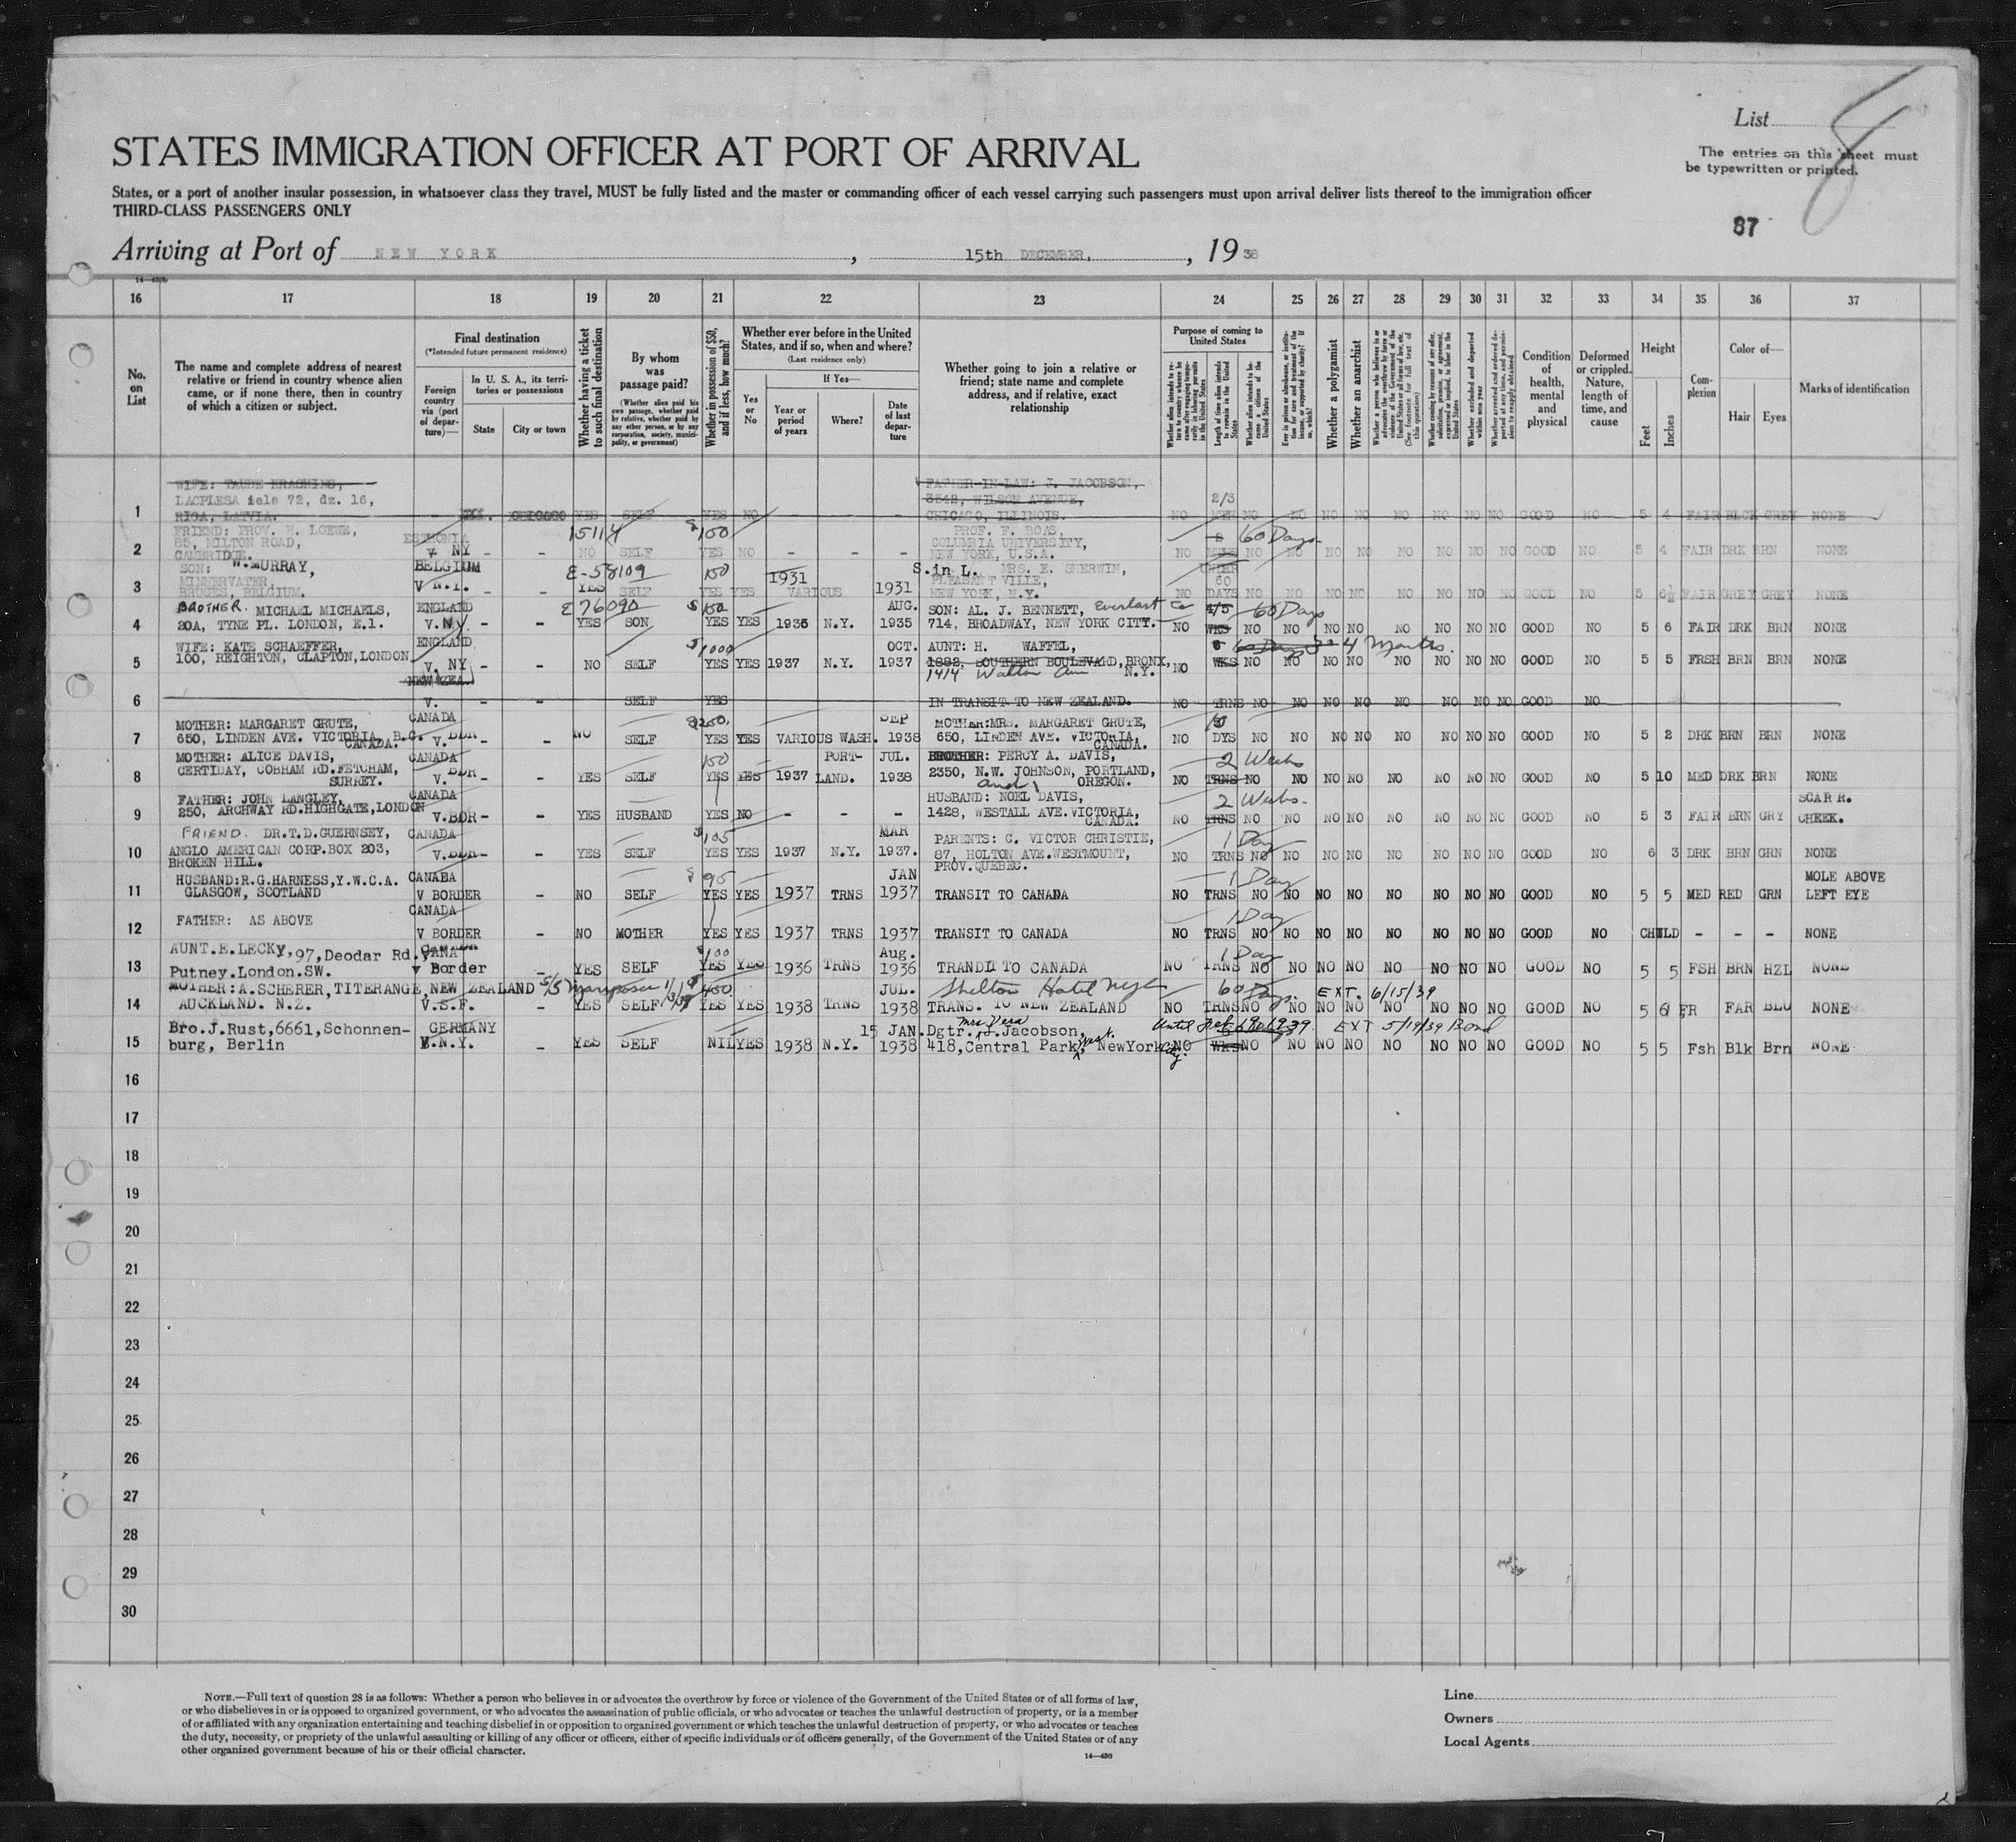 List
The entries on this sheet must
be typewritten or printed.
87
STATES IMMIGRATION OFFICER AT PORT OF ARRIVAL
States, or a port of another insular possession, in whatsoever class they travel, MUST be fully listed and the master or commanding officer of each vessel carrying such passengers must upon arrival deliver lists thereof to the immigration officer
THIRD-CLASS PASSENGERS ONLY
Arriving at Port of NEW YORK, 15th DECEMBER, 1938
16 17 18 19 20 21 22 23 24 25 26 27 28 29 30 31 32 33 34 35 36 37
No. on List
The name and complete address of nearest
relative or friend in country whence alien
came, or if none there, then in country
of which a citizen or subject.
Final destination
(*Intended future permanent residence)
Foreign country via (port of departure)—
In U. S. A., its territories or possessions
State
City or town
Whether having a ticket to such final destination
By whom was passage paid?
(Whether alien paid his own passage, whether paid by relative, whether paid by any other person, or by any corporation, society, municipality, or government)
Whether in possession of $50, and if less, how much?
Whether ever before in the United States, and if so, when and where?
(Last residence only)
Yes or No
If Yes—
Year or period of years
Where?
Date of last departure
Whether going to join a relative or
friend; state name and complete
address, and if relative, exact
relationship
Purpose of coming to United States
Whether a polygamist
Whether an anarchist
Condition of health, mental and physical
Deformed or crippled. Nature, length of time, and cause
Height
Feet
Inches
Complexion
Color of—
Hair
Eyes
Marks of identification
1 WIFE: TAUBE KRASHING,
LACPLESA iele 72, dz. 16,
RIGA, LATVIA. ILL. CHICAGO YES SELF YES NO
FATHER-IN-LAW: J. JACOBSON,
3542, WILSON AVENUE,
CHICAGO, ILLINOIS. 2/3 NO NO NO NO NO NO NO NO NO GOOD NO 5 4 FAIR BLCK GREY NONE
2 FRIEND: PROV. H. LOEWE,
85, MILTON ROAD,
CAMBRIDGE. ESTHONIA V. NY - - 15114 NO SELF $150 YES NO - - -
PROF. F. BOAS,
COLUMBIA UNIVERSITY,
NEW YORK, U.S.A. 60 Days NO NO NO NO NO NO NO NO NO GOOD NO 5 4 FAIR DRK BRN NONE
3 SON: W. MURRAY,
MINNERVATER,
BRUGES, BELGIUM. BELGIUM V N.Y. E-58109 YES SELF 150 YES YES 1931 VARIOUS 1931
S. in L. MRS. E. SHERWIN,
PLEASANT VILLE,
NEW YORK, N.Y. UNDER 60 DAYS NO NO NO NO NO NO NO NO NO GOOD NO 5 6½ FAIR GREY GREY NONE
4 BROTHER. MICHAEL MICHAELS,
20A, TYNE PL. LONDON, E.1. ENGLAND V. NY - - E 76090 YES SON $150 YES YES 1936 N.Y. AUG. 1935
SON: AL. J. BENNETT, Everlast Co
714, BROADWAY, NEW YORK CITY. 4/5 WKS 60 Days NO NO NO NO NO NO NO NO NO GOOD NO 5 6 FAIR DRK BRN NONE
5 WIFE: KATE SCHAEFFER,
100, REIGHTON, CLAPTON, LONDON ENGLAND V. NY - - NO SELF $1000 YES YES 1937 N.Y. OCT. 1937
AUNT: H. WAFFEL,
1882, SOUTHERN BOULEVARD, BRONX,
1414 Walton Ave N.Y. 6 WKS 60 Days 4 Months. NO NO NO NO NO NO NO NO NO GOOD NO 5 5 FRSH BRN BRN NONE
6 NEW ZEA. V. - SELF YES IN TRANSIT TO NEW ZEALAND. NO TRNS NO NO NO NO NO NO NO NO GOOD NO
7 MOTHER: MARGARET GRUTE,
650, LINDEN AVE. VICTORIA, B.C.
CANADA. CANADA V. BDR - - NO SELF $250 YES YES VARIOUS WASH. SEP 1938
MOTHER: MRS. MARGARET GRUTE,
650, LINDEN AVE. VICTORIA,
CANADA. 10 DYS NO NO NO NO NO NO NO NO NO GOOD NO 5 2 DRK BRN BRN NONE
8 MOTHER: ALICE DAVIS,
CERTIDAY, COBHAM RD. FETCHAM,
SURREY. CANADA V. BDR - - YES SELF 150 YES YES 1937 PORTLAND. JUL. 1938
BROTHER: PERCY A. DAVIS,
2350, N.W. JOHNSON, PORTLAND,
and OREGON. TRNS 2 Weeks NO NO NO NO NO NO NO NO NO GOOD NO 5 10 MED DRK BRN NONE
9 FATHER: JOHN LANGLEY,
250, ARCHWAY RD. HIGHGATE, LONDON CANADA V. BDR - - YES HUSBAND YES NO - - -
HUSBAND: NOEL DAVIS,
1428, WESTALL AVE. VICTORIA,
CANADA. TRNS 2 Weeks. NO NO NO NO NO NO NO NO NO GOOD NO 5 3 FAIR BRN GRY SCAR R. CHEEK.
10 FRIEND. DR. T.D. GUERNSEY,
ANGLO AMERICAN CORP. BOX 203,
BROKEN HILL. CANADA V. BDR - - YES SELF $105 YES YES 1937 N.Y. MAR 1937.
PARENTS: C. VICTOR CHRISTIE,
87, HOLTON AVE. WESTMOUNT,
PROV. QUEBEC. 1 Day NO TRNS NO NO NO NO NO NO NO NO GOOD NO 6 3 DRK BRN GRN NONE
11 HUSBAND: R.G. HARNESS, Y.W.C.A.
GLASGOW, SCOTLAND CANADA V BORDER - NO SELF $95 YES YES 1937 TRNS JAN 1937 TRANSIT TO CANADA 1 Day NO TRNS NO NO NO NO NO NO NO NO GOOD NO 5 5 MED RED GRN MOLE ABOVE LEFT EYE
12 FATHER: AS ABOVE CANADA V BORDER - NO MOTHER YES YES 1937 TRNS 1937 TRANSIT TO CANADA 1 Day NO TRNS NO NO NO NO NO NO NO NO GOOD NO CHILD - - - NONE
13 AUNT. E. LECKY, 97, Deodar Rd.,
Putney. London. SW. CANADA v Border - YES SELF $100 YES YES 1936 TRNS Aug. 1936 TRANDIT TO CANADA 1 Day NO TRNS NO NO NO NO NO NO NO NO GOOD NO 5 5 FSH BRN HZL NONE
14 MOTHER: A. SCHERER, TITERANGE,
AUCKLAND. N.Z. NEW ZEALAND V.S.F. - S/S Mariposa YES SELF 450 YES YES 1938 TRNS JUL. 1938
Shelton Hotel NYC
TRANS. TO NEW ZEALAND 60 Days. EXT. 6/15/39 NO TRNS NO NO NO NO NO NO NO NO GOOD NO 5 6 FR FAR BLU NONE
15 Bro. J. Rust, 6661, Schonnen-
burg, Berlin GERMANY V.N.Y. - YES SELF NIL YES 1938 N.Y. 15 JAN. 1938
Dgtr. Mrs Vera J. Jacobson,
418, Central Park, West. NewYork City. Until EXT 5/19/39 Bond NO WKS NO NO NO NO NO NO NO NO GOOD NO 5 5 Fsh Blk Brn NONE
16
17
18
19
20
21
22
23
24
25
26
27
28
29
30
NOTE.—Full text of question 28 is as follows: Whether a person who believes in or advocates the overthrow by force or violence of the Government of the United States or of all forms of law,
or who disbelieves in or is opposed to organized government, or who advocates the assassination of public officials, or who advocates or teaches the unlawful destruction of property, or is a member
of or affiliated with any organization entertaining and teaching disbelief in or opposition to organized government or which teaches the unlawful destruction of property, or who advocates or teaches
the duty, necessity, or propriety of the unlawful assaulting or killing of any officer or officers, either of specific individuals or of officers generally, of the Government of the United States or of any
other organized government because of his or their official character.
14—430
Line
Owners
Local Agents